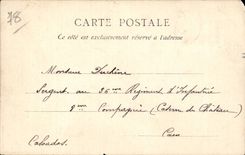 78
CARTE POSTALE
Ce côté est exclusivement réservé à l'adresse
Monsieur
Sergent au 36me Régiment d'Infanterie
2me Compagnie (Caserne du Château)
Caen
Calvados.